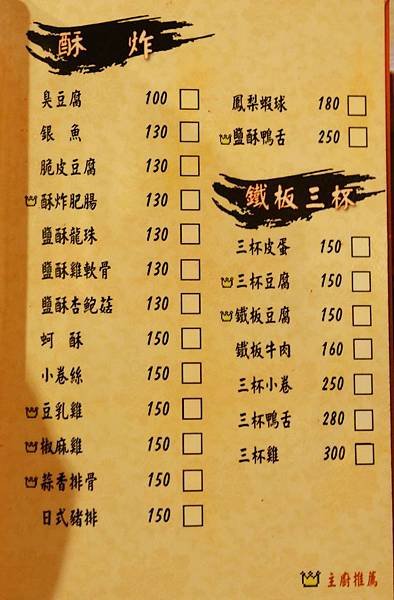 酥炸
臭豆腐 100
銀魚 130
脆皮豆腐 130
酥炸肥腸 130
鹽酥龍珠 130
鹽酥雞軟骨 130
鹽酥杏鮑菇 130
蚵酥 150
小卷絲 150
豆乳雞 150
椒麻雞 150
蒜香排骨 150
日式豬排 150
鳳梨蝦球 180
鹽酥鴨舌 250
鐵板三杯
三杯皮蛋 150
三杯豆腐 150
鐵板豆腐 150
鐵板牛肉 160
三杯小卷 250
三杯鴨舌 280
三杯雞 300
主廚推薦